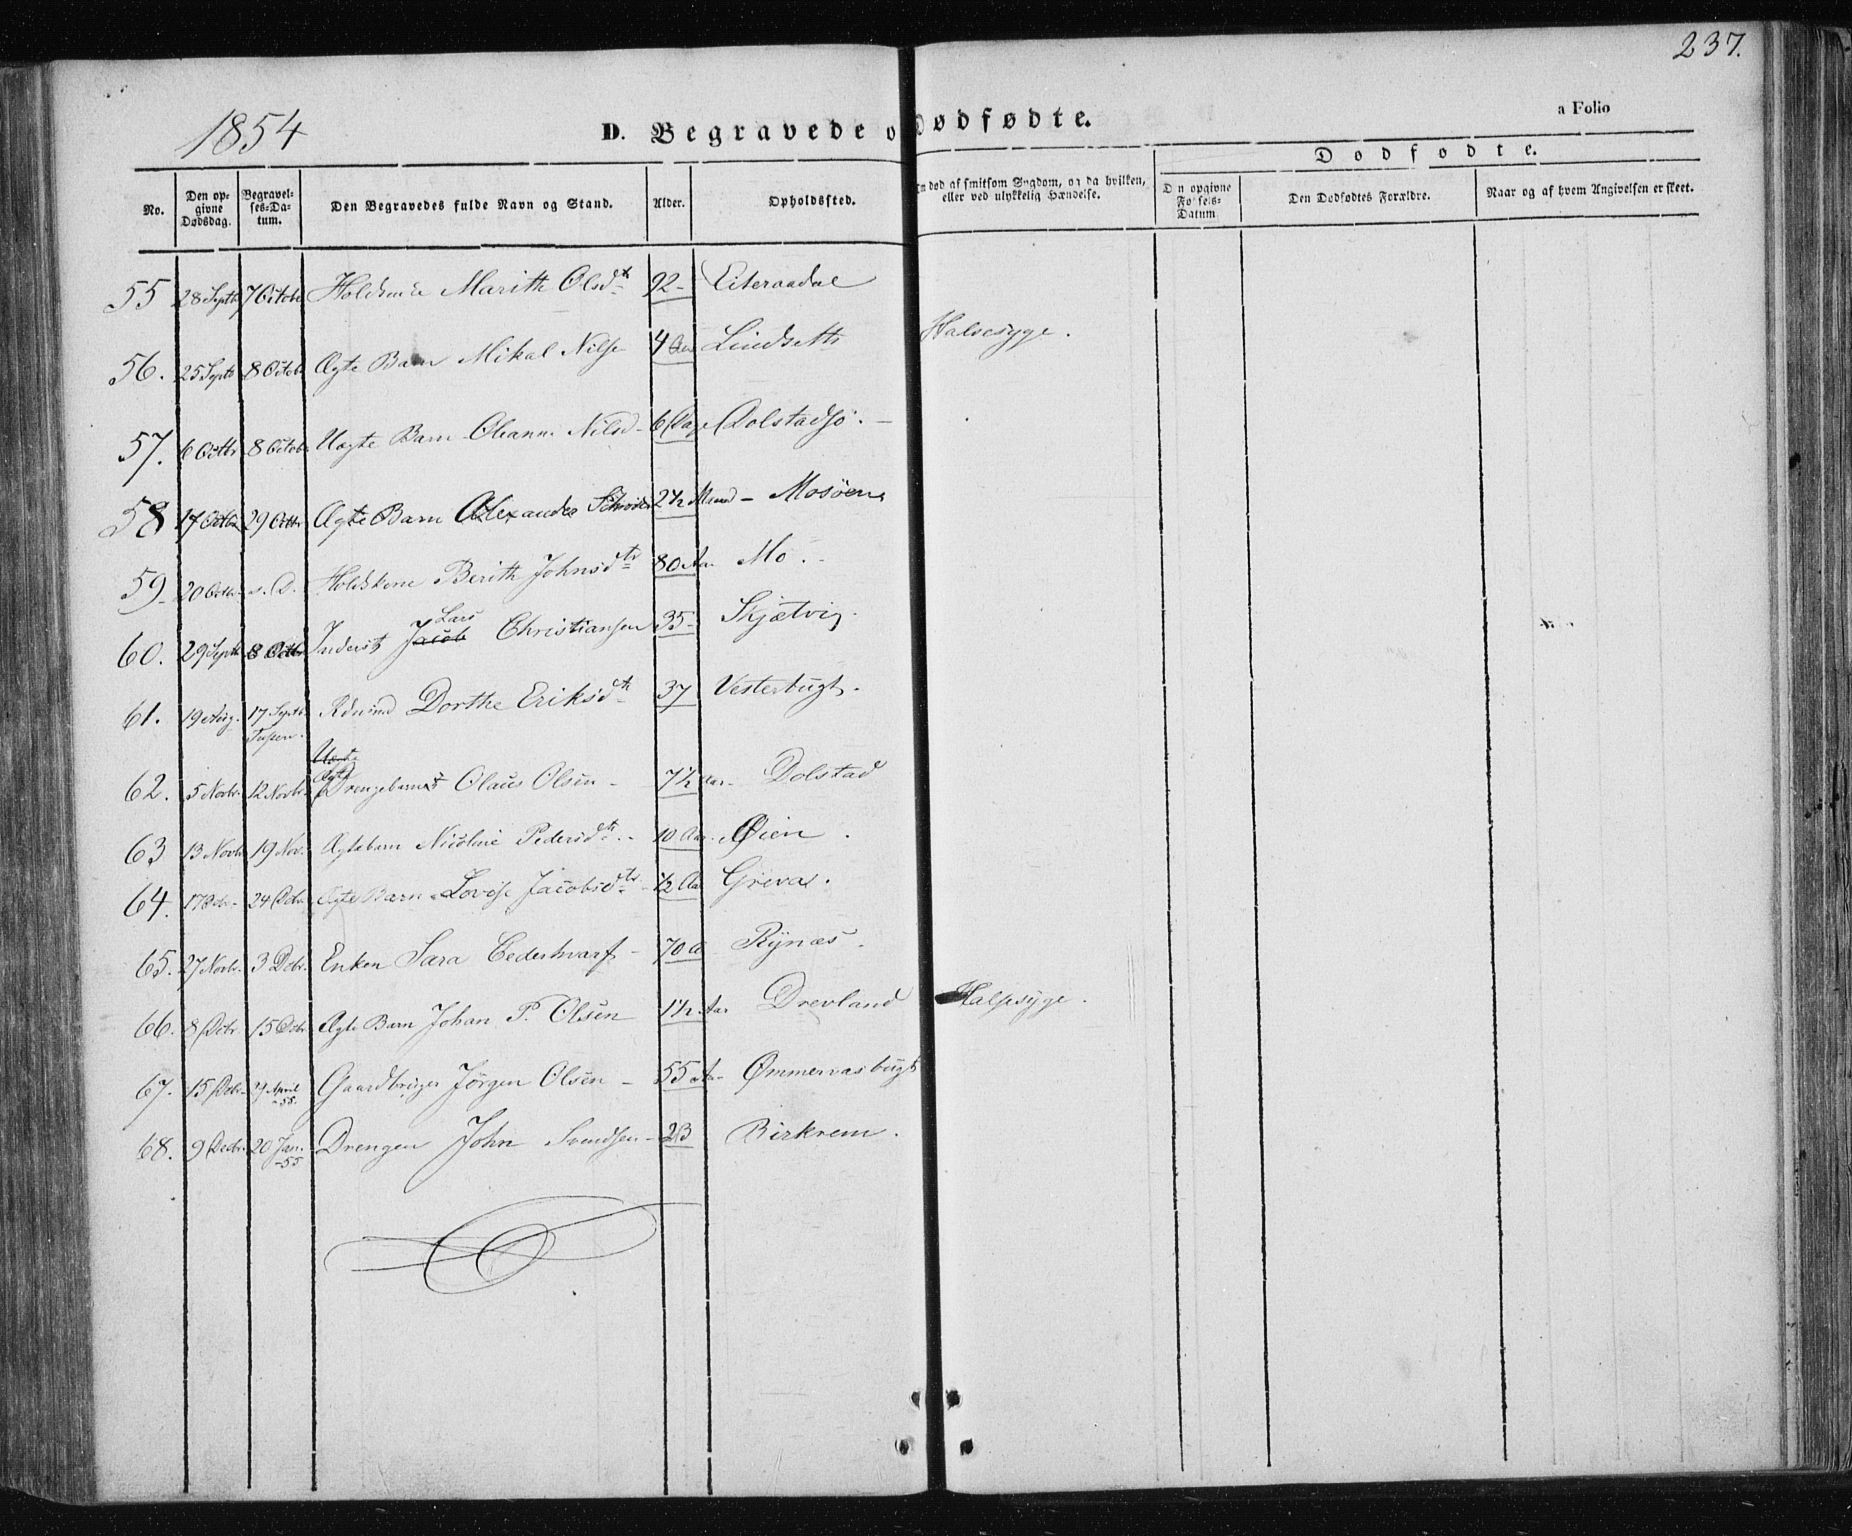 237.
1854
D. Begravede o dødfødte.
a Folio
Dødfødte.
No.
Den opgivne Dødsdag.
Begravelses-Datum.
Den Begravedes fulde Navn og Stand.
Alder.
Opholdsfted.
død af smitsom Sygdom, og da hvilken, eller ved ulykkelig Hændelse.
D n opgivne Fo sels-Datum
Den Dødfødtes Forældre.
Naar og af hvem Angivelsen er skeet.
55 28 Septb 7 Octobr Marith Olsdtr 92 - Eiteraadal
56. 25 Septb 8 Octob Ægte Barn Mikal Nilse 4 Lindseth Halsesyge.
57. 6 Octbr 8 Octob Uægte Barn Nilsd - 6 Dage Dolstadsjö. -
58 17 Octbr 29 Octbr Ægte Barn Alexander Schröder 2½ Maaned - Mosöen
59. 20 Octbr s. D. Berith Johnsdtr 80 Aar Mo. -
60. 29 Septb 8 Octbr Inderst Jacob Lars Christiansen 35 - Skjætvig.
61. 19 Aug. 17 Septb. Dorthe Eriksdtr 37 Vesterbugt.
62. 5 Novbr. 12 Novbr. Uægte Ægte Drengebarnet Olaus Olsen - 7½ Aar - Dolstad
63 13 Novbr 19 Nov. Ægtebarn Nicoline Pedersdtr. - 10 Aar. Øien.
64. 17 Dcbr - 24 Dcbr Ægte Barn Lovise Jacobsdtr - ½ Aar Grevas.
65. 27 Novbr. 3 Dcbr. Enken Sara Cedershvarf - 70 A Rynæs.
66. 8 Dcbr 15 Dcbr Ægte Barn Johan P. Olsen 1½ Aar Drevland Halssyge.
67. 15 Dcbr. 29 April -55. Gaardbruger Jörgen Olsen - 55 Aar Ømmervasbugt
68. 9 Decbr 20 Jan. -55 Drengen John Svendsen - 23 Birkrem.